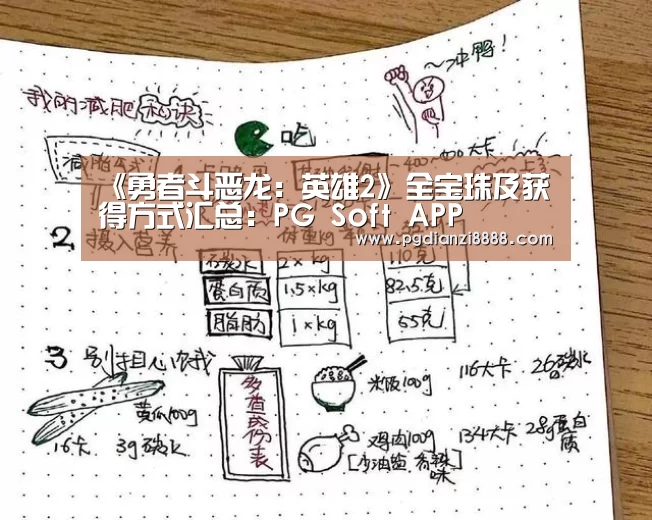 ～冲鸭!
我的减肥秘诀
吃
《勇者斗恶龙：英雄2》全宝珠及获
得方式汇总：PG Soft APP
www.pgdianzi8888.com
2. 摄入营养
碳水 2×kg 110克
蛋白质 1.5×kg 82.5克
脂肪 1×kg 55克
3 别担心饿
黄瓜100g
16卡 3g碳水
多查成份表
米饭100g 116大卡 26碳水
鸡肉100g 134大卡 28g蛋白质
[少油盐 香辣味]